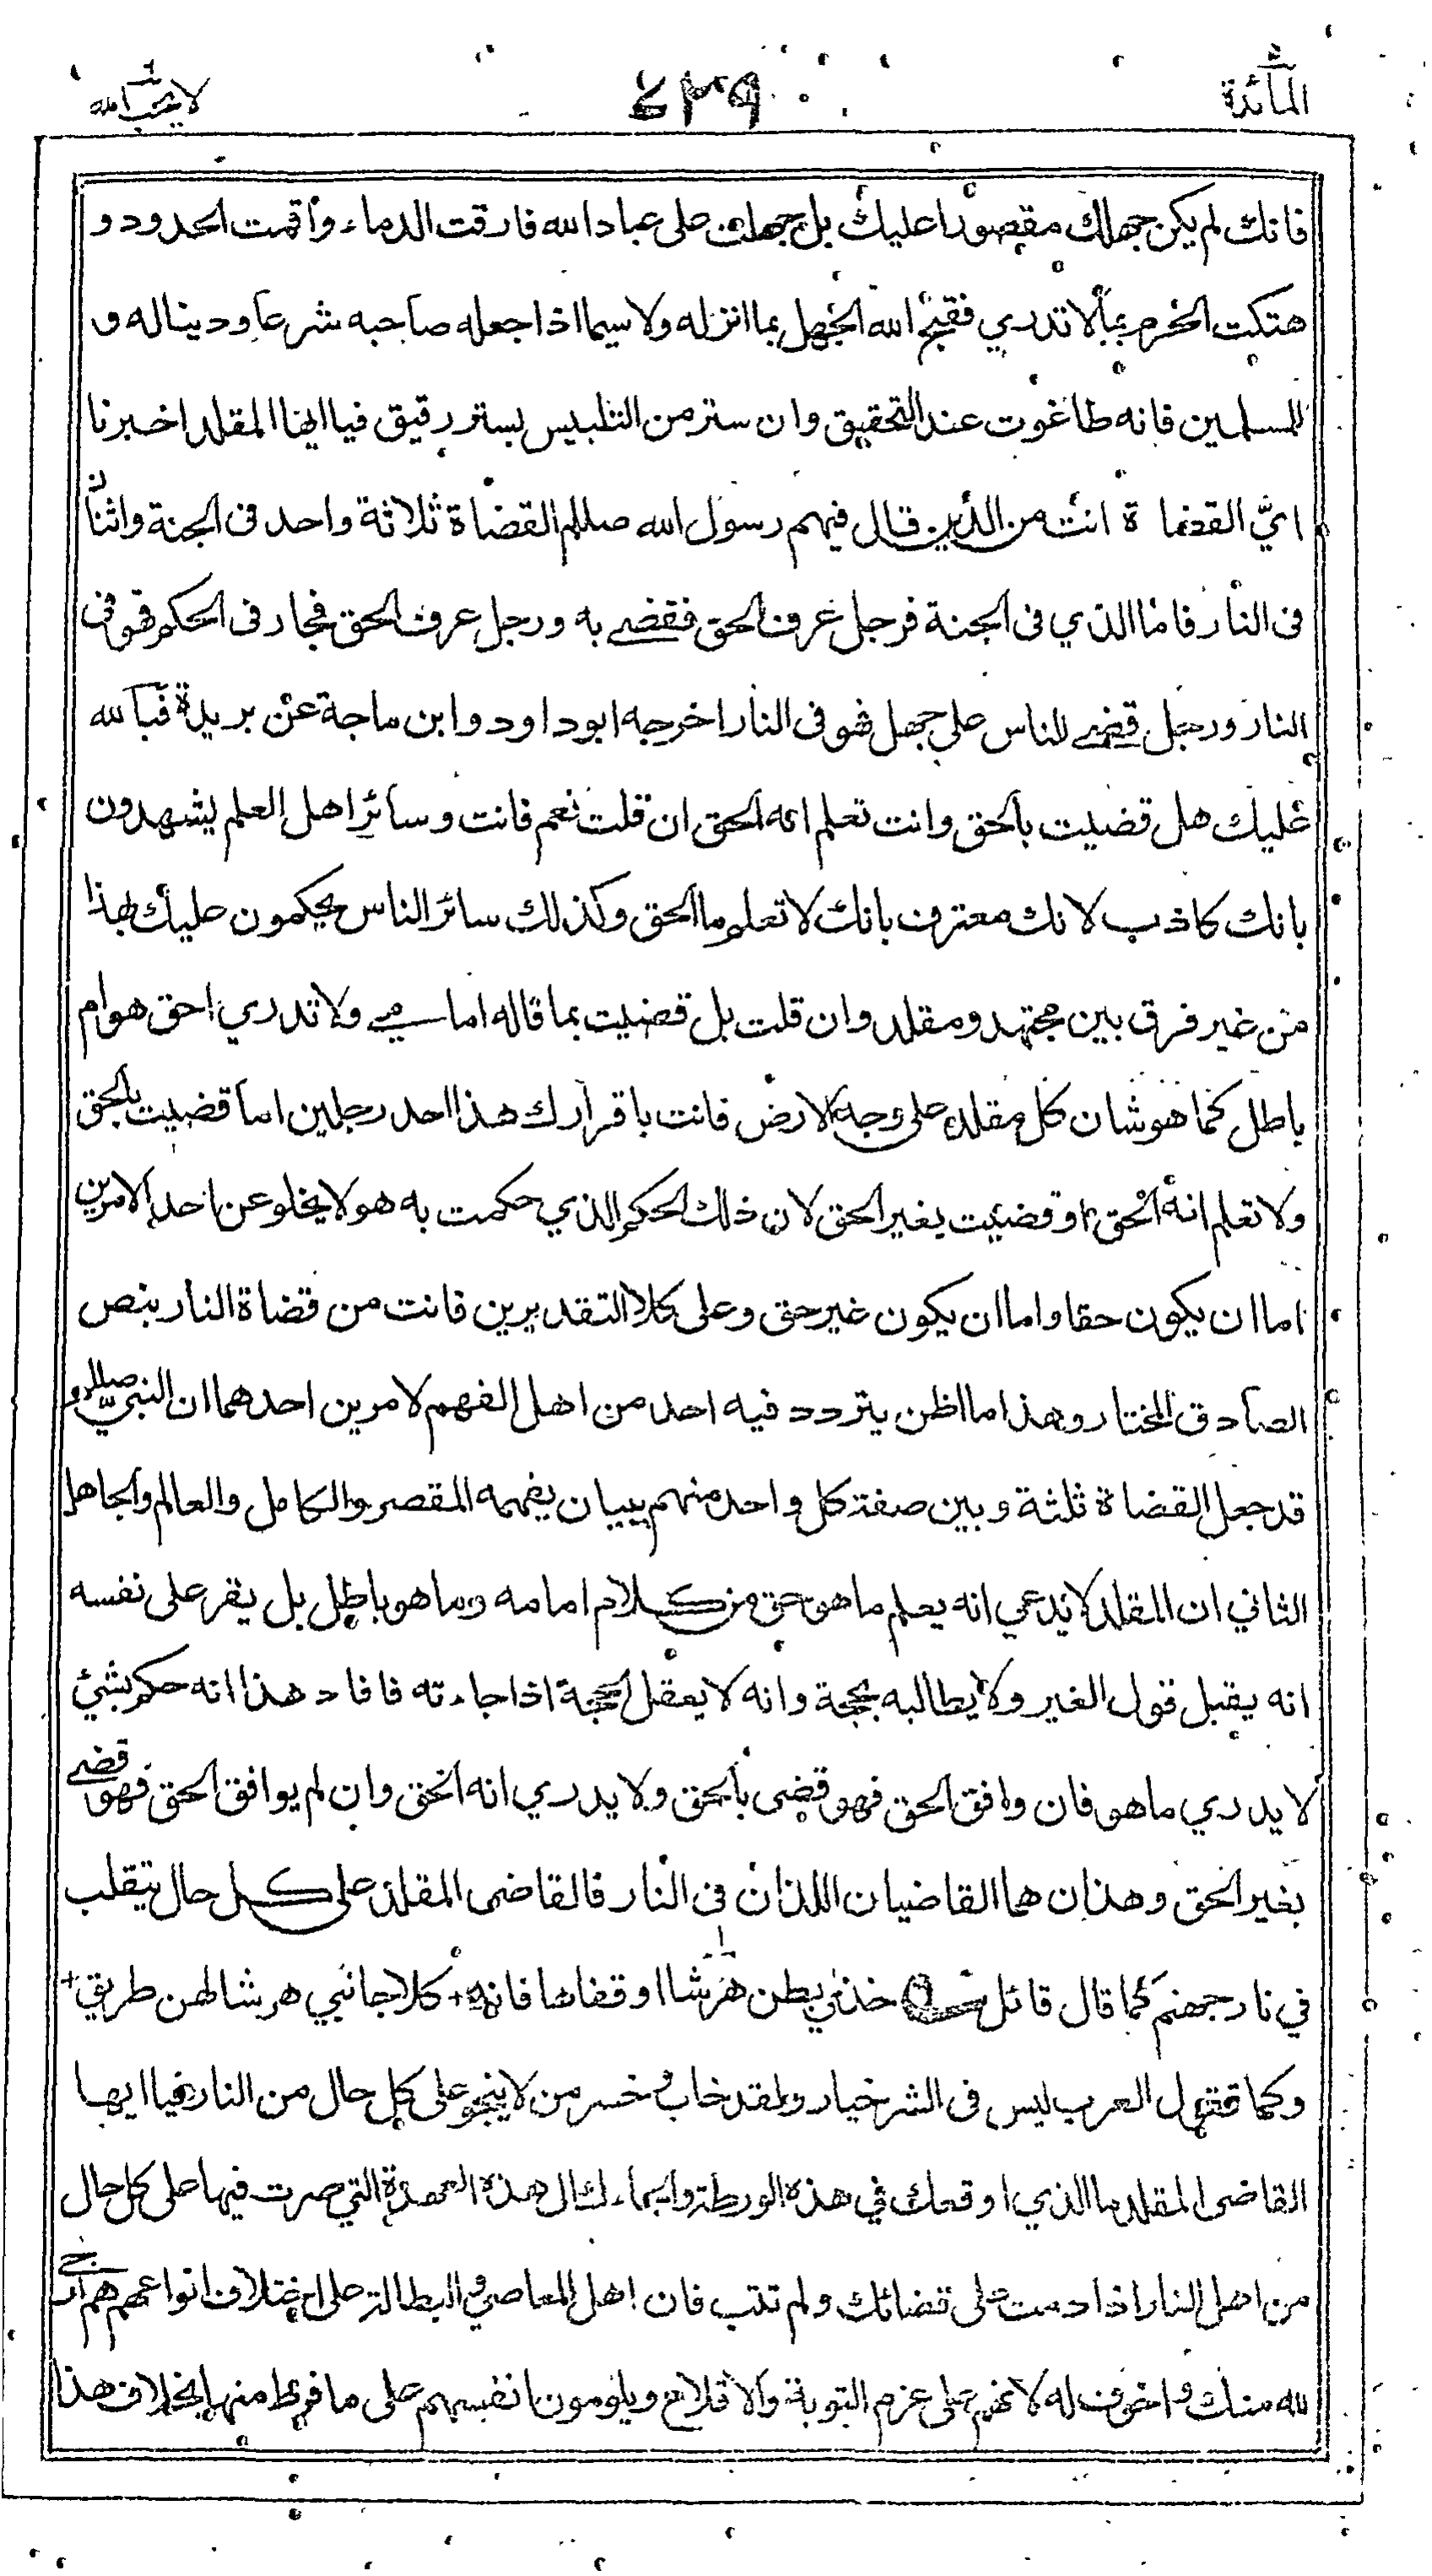 المآئدة
٤٣٩
لا يحب الله
فانك لم يكن جهلك مقصورا عليك بل جهلت على عباد الله فارقت الدماء وأقمت الحدود و
هتكت الحرم بما لا تدري فقبح الله الجهل بما انزله ولا سيما اذا جعله صاحبه شرعا ودينا له و
للمسلمين فانه طاغوت عند التحقيق وان ستر من التلبيس بستر رقيق فيا ايها المقلد اخبرنا
ايّ القضاة انت من الذين قال فيهم رسول الله صللم القضاة ثلاثة واحد فى الجنة واثنان
فى النار فاما الذي فى الجنة فرجل عرف الحق فقضے به ورجل عرف الحق فجار فى الحكم فهو فى
النار ورجل قضے للناس على جهل فهو فى النار اخرجه ابو داود وابن ماجة عن بريدة فبالله
عليك هل قضيت بالحق وانت تعلم انه الحق ان قلت نعم فانت وسائر اهل العلم يشهدون
بانك كاذب لانك معترف بانك لا تعلم ما الحق وكذلك سائر الناس يحكمون عليك بهذا
من غير فرق بين مجتهد ومقلد وان قلت بل قضيت بما قاله امامے ولا تدري احق هو ام
باطل كما هو شان كل مقلد على وجه الارض فانت باقرارك هذا احد رجلين اما قضيت بالحق
ولا تعلم انه الحق او قضيت بغير الحق لان ذلك الحكم الذي حكمت به هو لا يخلو عن احد الامرين
اما ان يكون حقا واما ان يكون غير حق وعلى كلا التقديرين فانت من قضاة النار بنص
الصادق المختار وهذا ما اظن يتردد فيه احد من اهل الفهم لامرين احدهما ان النبيّ صللم
قد جعل القضاة ثلثة وبين صفة كل واحد منهم ببيان يفهمه المقصر والكامل والعالم والجاهل
الثاني ان المقلد لا يدعي انه يعلم ما هو حق من كلام امامه وما هو باطل بل يقر على نفسه
انه يقبل قول الغير ولا يطالبه بحجة وانه لا يعقل الحجة اذا جاءته فافاد هذا انه حكم بشئ
لا يدري ما هو فان وافق الحق فهو قضى بالحق ولا يدري انه الحق وان لم يوافق الحق فهو قضے
بغير الحق وهذان هما القاضيان اللذان فى النار فالقاضى المقلد على كل حال يتقلب
في نار جهنم كما قال قائل خذني بطن هرشا او قفاها فانه + كلا جانبي هرشا لهن طريق +
وكما تقول العرب ليس فى الشر خيار ولقد خاب و خسر من لا ينجو على كل حال من النار فيا ايها
القاضى المقلد ما الذي اوقعك في هذه الورطة والجاءك الى هذه العهدة التي صرت فيها على كل حال
من اهل النار اذا دمت على قضائك ولم تتب فان اهل المعاصي والبطالة على اختلاف انواعهم هم ارجے
لله منك واخوف له لانهم على عزم التوبة والاقلاع ويلومون انفسهم على ما فرط منها بخلاف هذا